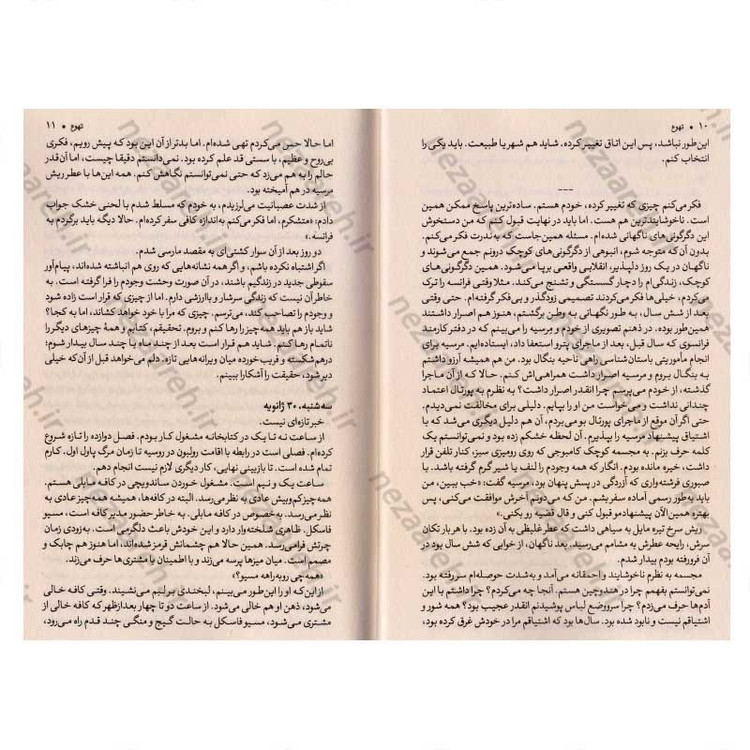 ۱۰ • تهوع
این‌طور نباشد، پس این اتاق تغییر کرده. شاید هم شهر یا طبیعت. باید یکی را
انتخاب کنم.
---
فکر می‌کنم چیزی که تغییر کرده، خودم هستم. ساده‌ترین پاسخ ممکن همین
است. ناخوشایندترین هم هست. اما باید در نهایت قبول کنم که من دستخوش
این دگرگونی‌های ناگهانی شده‌ام. مسئله همین‌جاست که به‌ندرت فکر می‌کنم.
بدون آن که متوجه شوم، انبوهی از دگرگونی‌های کوچک درونم جمع می‌شوند و
ناگهان در یک روز دلپذیر، انقلابی واقعی برپا می‌شود. همین دگرگونی‌های
کوچک، زندگی‌ام را دچار گسستگی و تشنج می‌کند. مثلا وقتی فرانسه را ترک
می‌کردم، خیلی‌ها فکر می‌کردند تصمیمی زودگذر و بی‌فکر گرفته‌ام. حتی وقتی
بعد از شش سال، به طور نگهانی به وطن برگشتم، هنوز هم اصرار داشتند
همین‌طور بوده. در ذهنم تصویری از خودم و مرسیه را می‌بینم که در دفتر کارمند
فرانسوی که سال قبل، بعد از ماجرای پترو استعفا داد، ایستاده‌ایم. مرسیه برای
انجام مأموریتی باستان‌شناسی راهی ناحیه بنگال بود. من هم همیشه آرزو داشتم
به بنگال بروم و مرسیه اصرار داشت همراهی‌اش کنم. حالا که از آن ماجرا
گذشته، از خودم می‌پرسم چرا انقدر اصرار داشت؟ به نظرم به پورتال اعتماد
چندانی نداشت و می‌خواست من او را بپایم. دلیلی برای مخالفت نمی‌دیدم.
حتی اگر آن موقع از ماجرای پورتال بو می‌بردم، آن هم دلیل دیگری می‌شد که با
اشتیاق پیشنهاد مرسیه را بپذیرم. آن لحظه خشکم زده بود و نمی‌توانستم یک
کلمه حرف بزنم. به مجسمه کوچک کامبوجی که روی رومیزی سبز، کنار تلفن قرار
داشت، خیره مانده بودم. انگار که همه وجودم را لنف یا شیر گرم گرفته باشد. با
صبوری فرشته‌واری که آزردگی در پسش پنهان بود، مرسیه گفت: «خب ببین، من
باید به‌طور رسمی آماده سفر بشم. من که می‌دونم آخرش موافقت می‌کنی، پس
بهتره همین الآن پیشنهادمو قبول کنی و قال قضیه رو بکنی.»
ریش سرخ تیره مایل به سیاهی داشت که عطر غلیظی به آن زده بود. با هر بار تکان
سرش، رایحه عطرش به مشام می‌رسید. بعد ناگهان، از خوابی که شش سال بود در
آن فرورفته بودم بیدار شدم.
مجسمه به نظرم ناخوشایند و احمقانه می‌آمد و به‌شدت حوصله‌ام سررفته بود.
نمی‌توانستم بفهمم چرا در هندوچین هستم. آنجا چه می‌کردم؟ چرا داشتم با این
آدم‌ها حرف می‌زدم؟ چرا سر و وضع لباس پوشیدنم انقدر عجیب بود؟ همه شور و
اشتیاقم نیست و نابود شده بود. سال‌ها بود که اشتیاقم مرا در خودش غرق کرده بود،
تهوع • ۱۱
اما حالا حس می‌کردم تهی شده‌ام. اما بدتر از آن این بود که پیش رویم، فکری
بی‌روح و عظیم، با سستی قد علم کرده بود. نمی‌دانستم دقیقا چیست، اما آن‌قدر
حالم را به هم می‌زد که حتی نمی‌توانستم نگاهش کنم. همه این‌ها با عطر ریش
مرسیه در هم آمیخته بود.
از شدت عصبانیت می‌لرزیدم، به خودم که مسلط شدم با لحنی خشک جواب
دادم: «متشکرم، اما فکر می‌کنم به‌اندازه کافی سفر کرده‌ام. حالا دیگه باید برگردم به
فرانسه.»
دو روز بعد از آن سوار کشتی‌ای به مقصد مارسی شدم.
اگر اشتباه نکرده باشم، و اگر همه نشانه‌هایی که روی هم انباشته شده‌اند، پیام‌آور
سقوطی جدید در زندگیم باشند، در آن صورت وحشت وجودم را فرا گرفته است. به
خاطر آن نیست که زندگی سرشار و باارزشی دارم. اما از چیزی که قرار است زاده شود
و وجودم را تصاحب کند، می‌ترسم. چیزی که مرا با خود خواهد کشاند، اما به کجا؟
شاید باز هم باید همه‌چیز را رها کنم و بروم. تحقیقم، کتابم و همهٔ چیزهای دیگر را
ناتمام رها کنم. شاید هم قرار است بعد از چند ماه یا چند سال بیدار شوم؛
درهم‌شکسته و فریب خورده میان ویرانه‌هایی تازه. دلم می‌خواهد قبل از آن که خیلی
دیر شود، حقیقت را آشکارا ببینم.
سه‌شنبه، ۳۰ ژانویه
خبر تازه‌ای نیست.
از ساعت نه تا یک در کتابخانه مشغول کار بودم. فصل دوازده را تازه شروع
کرده‌ام. فصلی است در رابطه با اقامت رولبون در روسیه تا زمان مرگ پاول اول. کارم
تمام شده است. تا بازبینی نهایی، کار دیگری لازم نیست انجام دهم.
ساعت یک و نیم است. مشغول خوردن ساندویچی در کافه مابلی هستم.
همه‌چیز کم‌وبیش عادی به نظر می‌رسد. البته در کافه‌ها، همیشه همه‌چیز عادی به
نظر می‌رسد. به‌خصوص در کافه مابلی. به خاطر حضور مدیر کافه است، مسیو
فاسکل. ظاهری شلخته‌وار دارد و این خودش باعث دلگرمی است. به‌زودی زمان
چرتش فرامی‌رسد. همین حالا هم چشمانش قرمز شده‌اند، اما هنوز هم چابک و
مصمم است. میان میزها پرسه می‌زند و با اطمینان با مشتری‌ها حرف می‌زند.
«همه‌چی روبه‌راهه مسیو؟»
از این‌که او را این‌طور می‌بینم، لبخندی بر لبم می‌نشیند. وقتی کافه خالی
می‌شود، ذهن او هم خالی می‌شود. از ساعت دو تا چهار بعدازظهر که کافه خالی از
مشتری می‌شود، مسیو فاسکل به حالت گیج و منگی چند قدم راه می‌رود،
nezaareh.ir